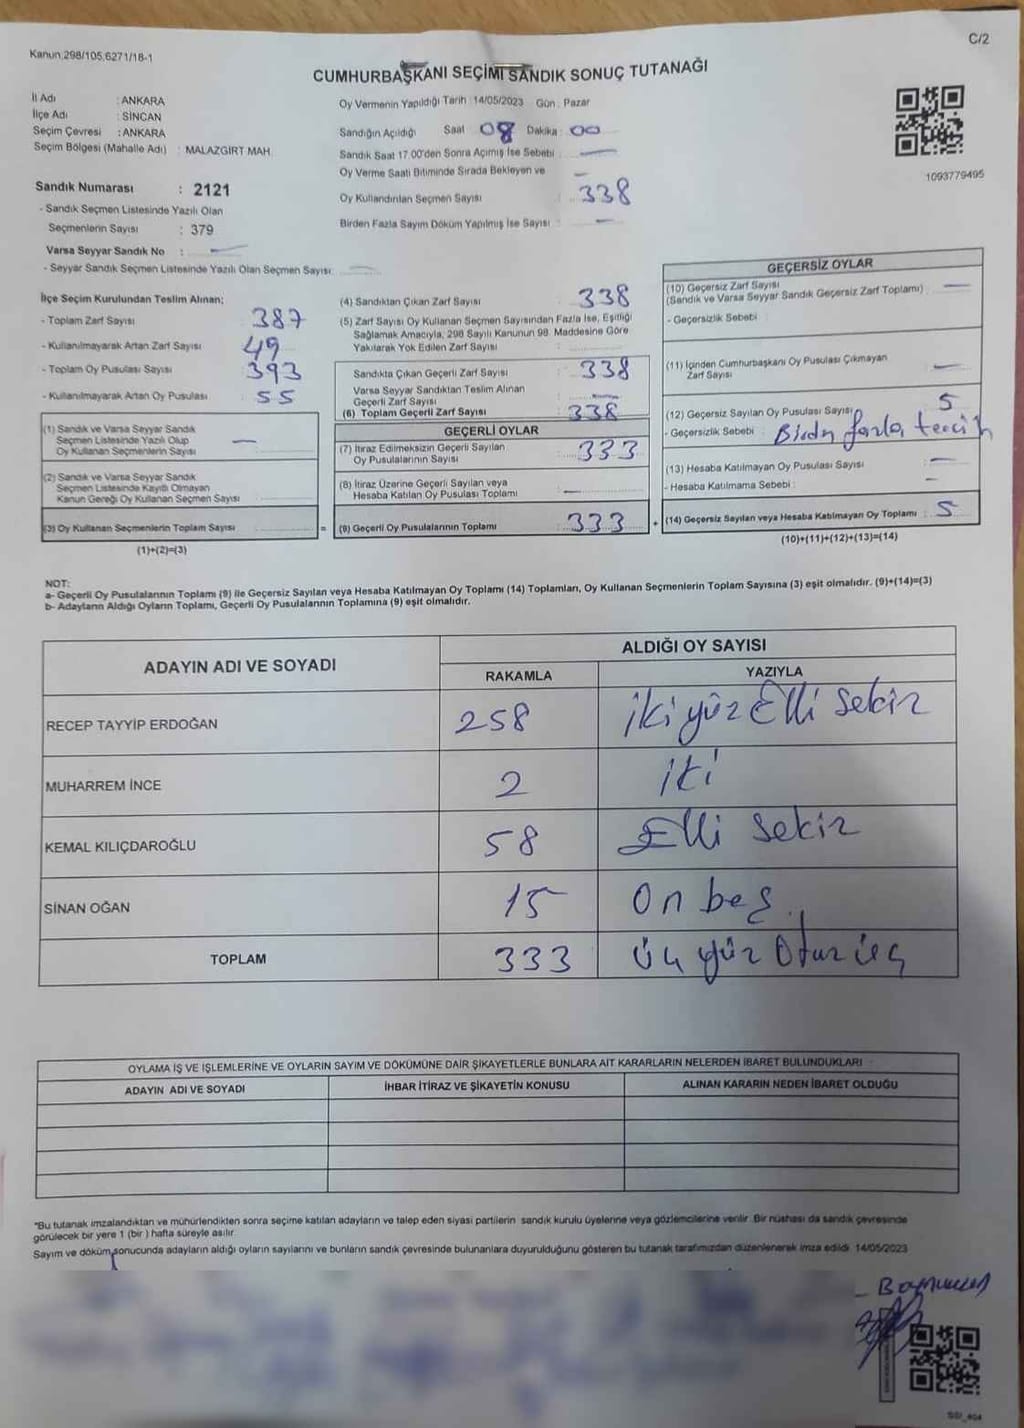 C/2
Kanun:298/105,6271/18-1
CUMHURBAŞKANI SEÇİMİ SANDIK SONUÇ TUTANAĞI
İl Adı : ANKARA
İlçe Adı : SİNCAN
Seçim Çevresi : ANKARA
Seçim Bölgesi (Mahalle Adı) : MALAZGİRT MAH.
Oy Vermenin Yapıldığı Tarih :14/05/2023 Gün : Pazar
Sandığın Açıldığı Saat 08 Dakika 00
Sandık Saat 17.00'den Sonra Açılmış İse Sebebi : —
Oy Verme Saati Bitiminde Sırada Bekleyen ve —
Oy Kullandırılan Seçmen Sayısı : 338
Birden Fazla Sayım Döküm Yapılmış İse Sayısı : —
1093779495
Sandık Numarası : 2121
- Sandık Seçmen Listesinde Yazılı Olan
Seçmenlerin Sayısı : 379
Varsa Seyyar Sandık No : —
- Seyyar Sandık Seçmen Listesinde Yazılı Olan Seçmen Sayısı: —
İlçe Seçim Kurulundan Teslim Alınan;
- Toplam Zarf Sayısı 387
- Kullanılmayarak Artan Zarf Sayısı 49
- Toplam Oy Pusulası Sayısı 393
- Kullanılmayarak Artan Oy Pusulası 55
(1) Sandık ve Varsa Seyyar Sandık
Seçmen Listesinde Yazılı Olup —
Oy Kullanan Seçmenlerin Sayısı
(2) Sandık ve Varsa Seyyar Sandık
Seçmen Listesinde Kayıtlı Olmayan
Kanun Gereği Oy Kullanan Seçmen Sayısı
(3) Oy Kullanan Seçmenlerin Toplam Sayısı =
(1)+(2)=(3)
(4) Sandıktan Çıkan Zarf Sayısı 338
(5) Zarf Sayısı Oy Kullanan Seçmen Sayısından Fazla İse, Eşitliği
Sağlamak Amacıyla, 298 Sayılı Kanunun 98. Maddesine Göre
Yakılarak Yok Edilen Zarf Sayısı :
Sandıkta Çıkan Geçerli Zarf Sayısı : 338
Varsa Seyyar Sandıktan Teslim Alınan
Geçerli Zarf Sayısı —
(6) Toplam Geçerli Zarf Sayısı : 338
GEÇERLİ OYLAR
(7) İtiraz Edilmeksizin Geçerli Sayılan
Oy Pusulalarının Sayısı : 333
(8) İtiraz Üzerine Geçerli Sayılan veya
Hesaba Katılan Oy Pusulası Toplamı : —
(9) Geçerli Oy Pusulalarının Toplamı : 333 +
GEÇERSİZ OYLAR
(10) Geçersiz Zarf Sayısı
(Sandık ve Varsa Seyyar Sandık Geçersiz Zarf Toplamı) : —
- Geçersizlik Sebebi :
(11) İçinden Cumhurbaşkanı Oy Pusulası Çıkmayan
Zarf Sayısı —
(12) Geçersiz Sayılan Oy Pusulası Sayısı 5
- Geçersizlik Sebebi : Birden fazla tercih
(13) Hesaba Katılmayan Oy Pusulası Sayısı —
- Hesaba Katılmama Sebebi : —
(14) Geçersiz Sayılan veya Hesaba Katılmayan Oy Toplamı : 5
(10)+(11)+(12)+(13)=(14)
NOT:
a- Geçerli Oy Pusulalarının Toplamı (9) ile Geçersiz Sayılan veya Hesaba Katılmayan Oy Toplamı (14) Toplamları, Oy Kullanan Seçmenlerin Toplam Sayısına (3) eşit olmalıdır. (9)+(14)=(3)
b- Adayların Aldığı Oyların Toplamı, Geçerli Oy Pusulalarının Toplamına (9) eşit olmalıdır.
ADAYIN ADI VE SOYADI
ALDIĞI OY SAYISI
RAKAMLA YAZIYLA
RECEP TAYYİP ERDOĞAN 258 iki yüz Elli sekiz
MUHARREM İNCE 2 iki
KEMAL KILIÇDAROĞLU 58 Elli sekiz
SİNAN OĞAN 15 On beş
TOPLAM 333 Üç yüz Otuz üç
OYLAMA İŞ VE İŞLEMLERİNE VE OYLARIN SAYIM VE DÖKÜMÜNE DAİR ŞİKAYETLERLE BUNLARA AİT KARARLARIN NELERDEN İBARET BULUNDUKLARI
ADAYIN ADI VE SOYADI İHBAR İTİRAZ VE ŞİKAYETİN KONUSU ALINAN KARARIN NEDEN İBARET OLDUĞU
*Bu tutanak imzalandıktan ve mühürlendikten sonra seçime katılan adayların ve talep eden siyasi partilerin sandık kurulu üyelerine veya gözlemcilerine verilir. Bir nüshası da sandık çevresinde
görülecek bir yere 1 (bir ) hafta süreyle asılır.
Sayım ve döküm sonucunda adayların aldığı oyların sayılarını ve bunların sandık çevresinde bulunanlara duyurulduğunu gösteren bu tutanak tarafımızdan düzenlenerek imza edildi. 14/05/2023